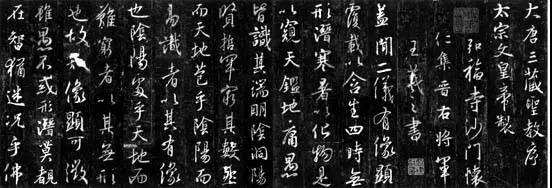 大唐三藏聖教序
太宗文皇帝製
弘福寺沙門懷
仁集晉右將軍
王羲之書
蓋聞二儀有像顯
覆載以含生四時無
形潛寒暑以化物是
以窺天鑑地庸愚
皆識其端明陰洞陽
賢哲罕窮其數然
而天地苞乎陰陽而
易識者以其有像
也陰陽處乎天地而
難窮者以其無形
也故知像顯可徵
雖愚不惑形潛莫覩
在智猶迷況乎佛